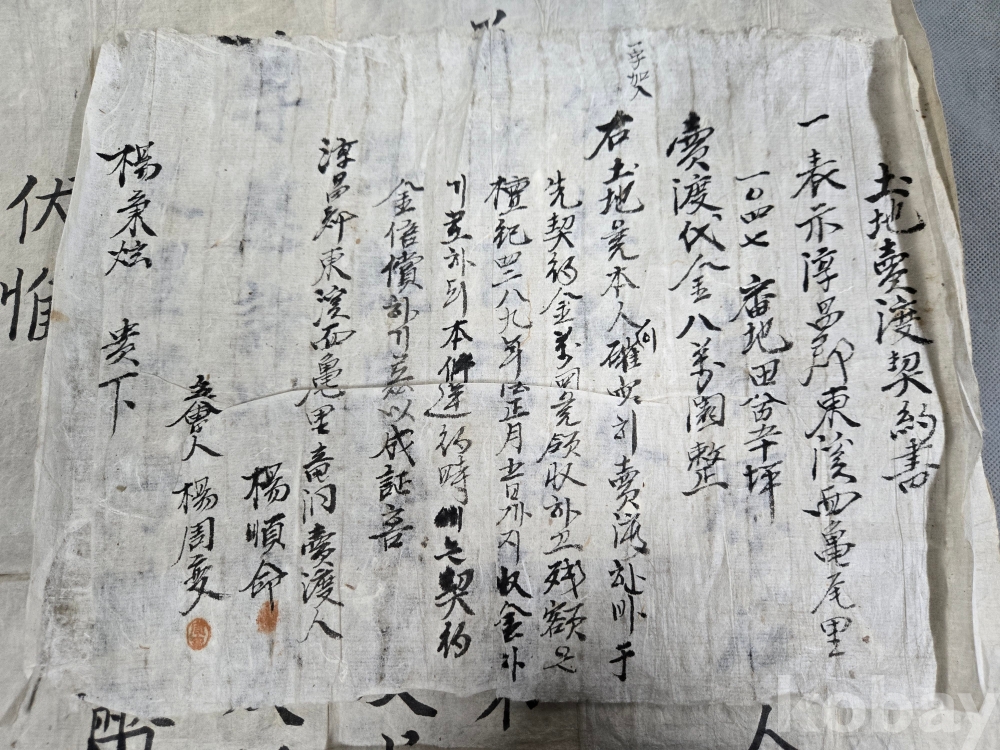 土地賣渡契約書
一 表示淳昌郡東溪面龜尾里
一〇四七 番地田 坪
賣渡代金八萬圜整
一字加入
右土地 本人 確 히 賣渡 하 子
先契約金 萬圜 領收하고 残額은
檀紀四二八九年 正月 日까지 收金하
기로하되 本件違約時 는 契約
金倍償하기 以成証言
淳昌郡東溪面龜 里 洞賣渡人
楊順命
立會人 楊周燮
楊秉炫 貴下
伏
惟
人
kobay